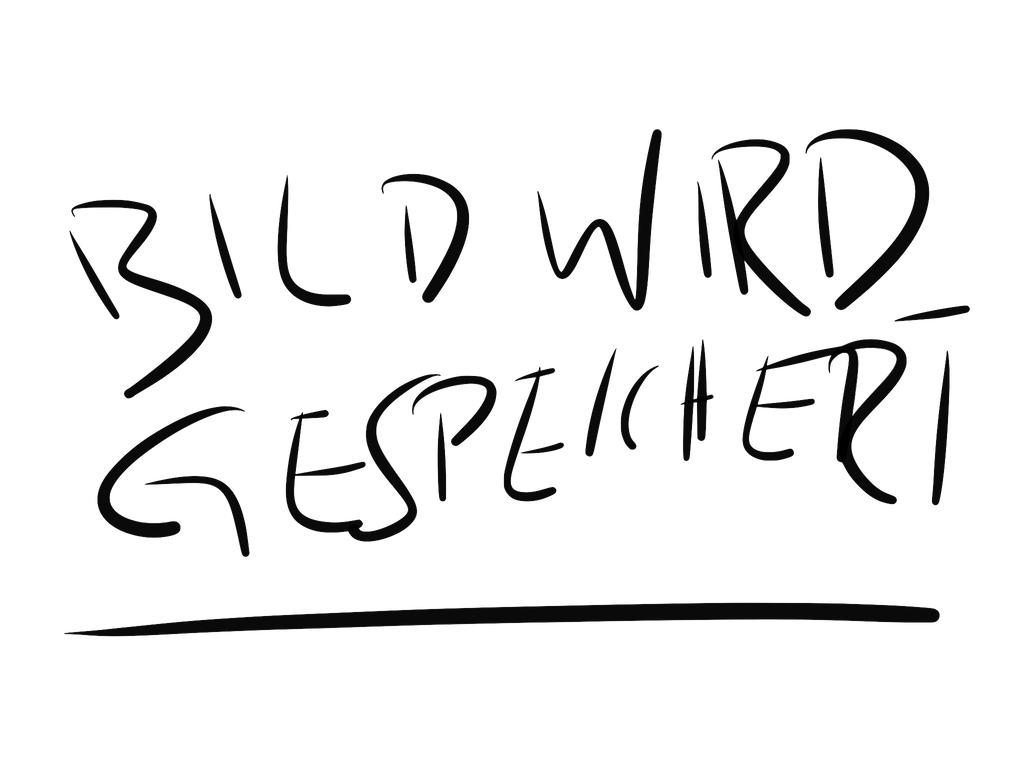 BILD WIRD
GESPEICHERT